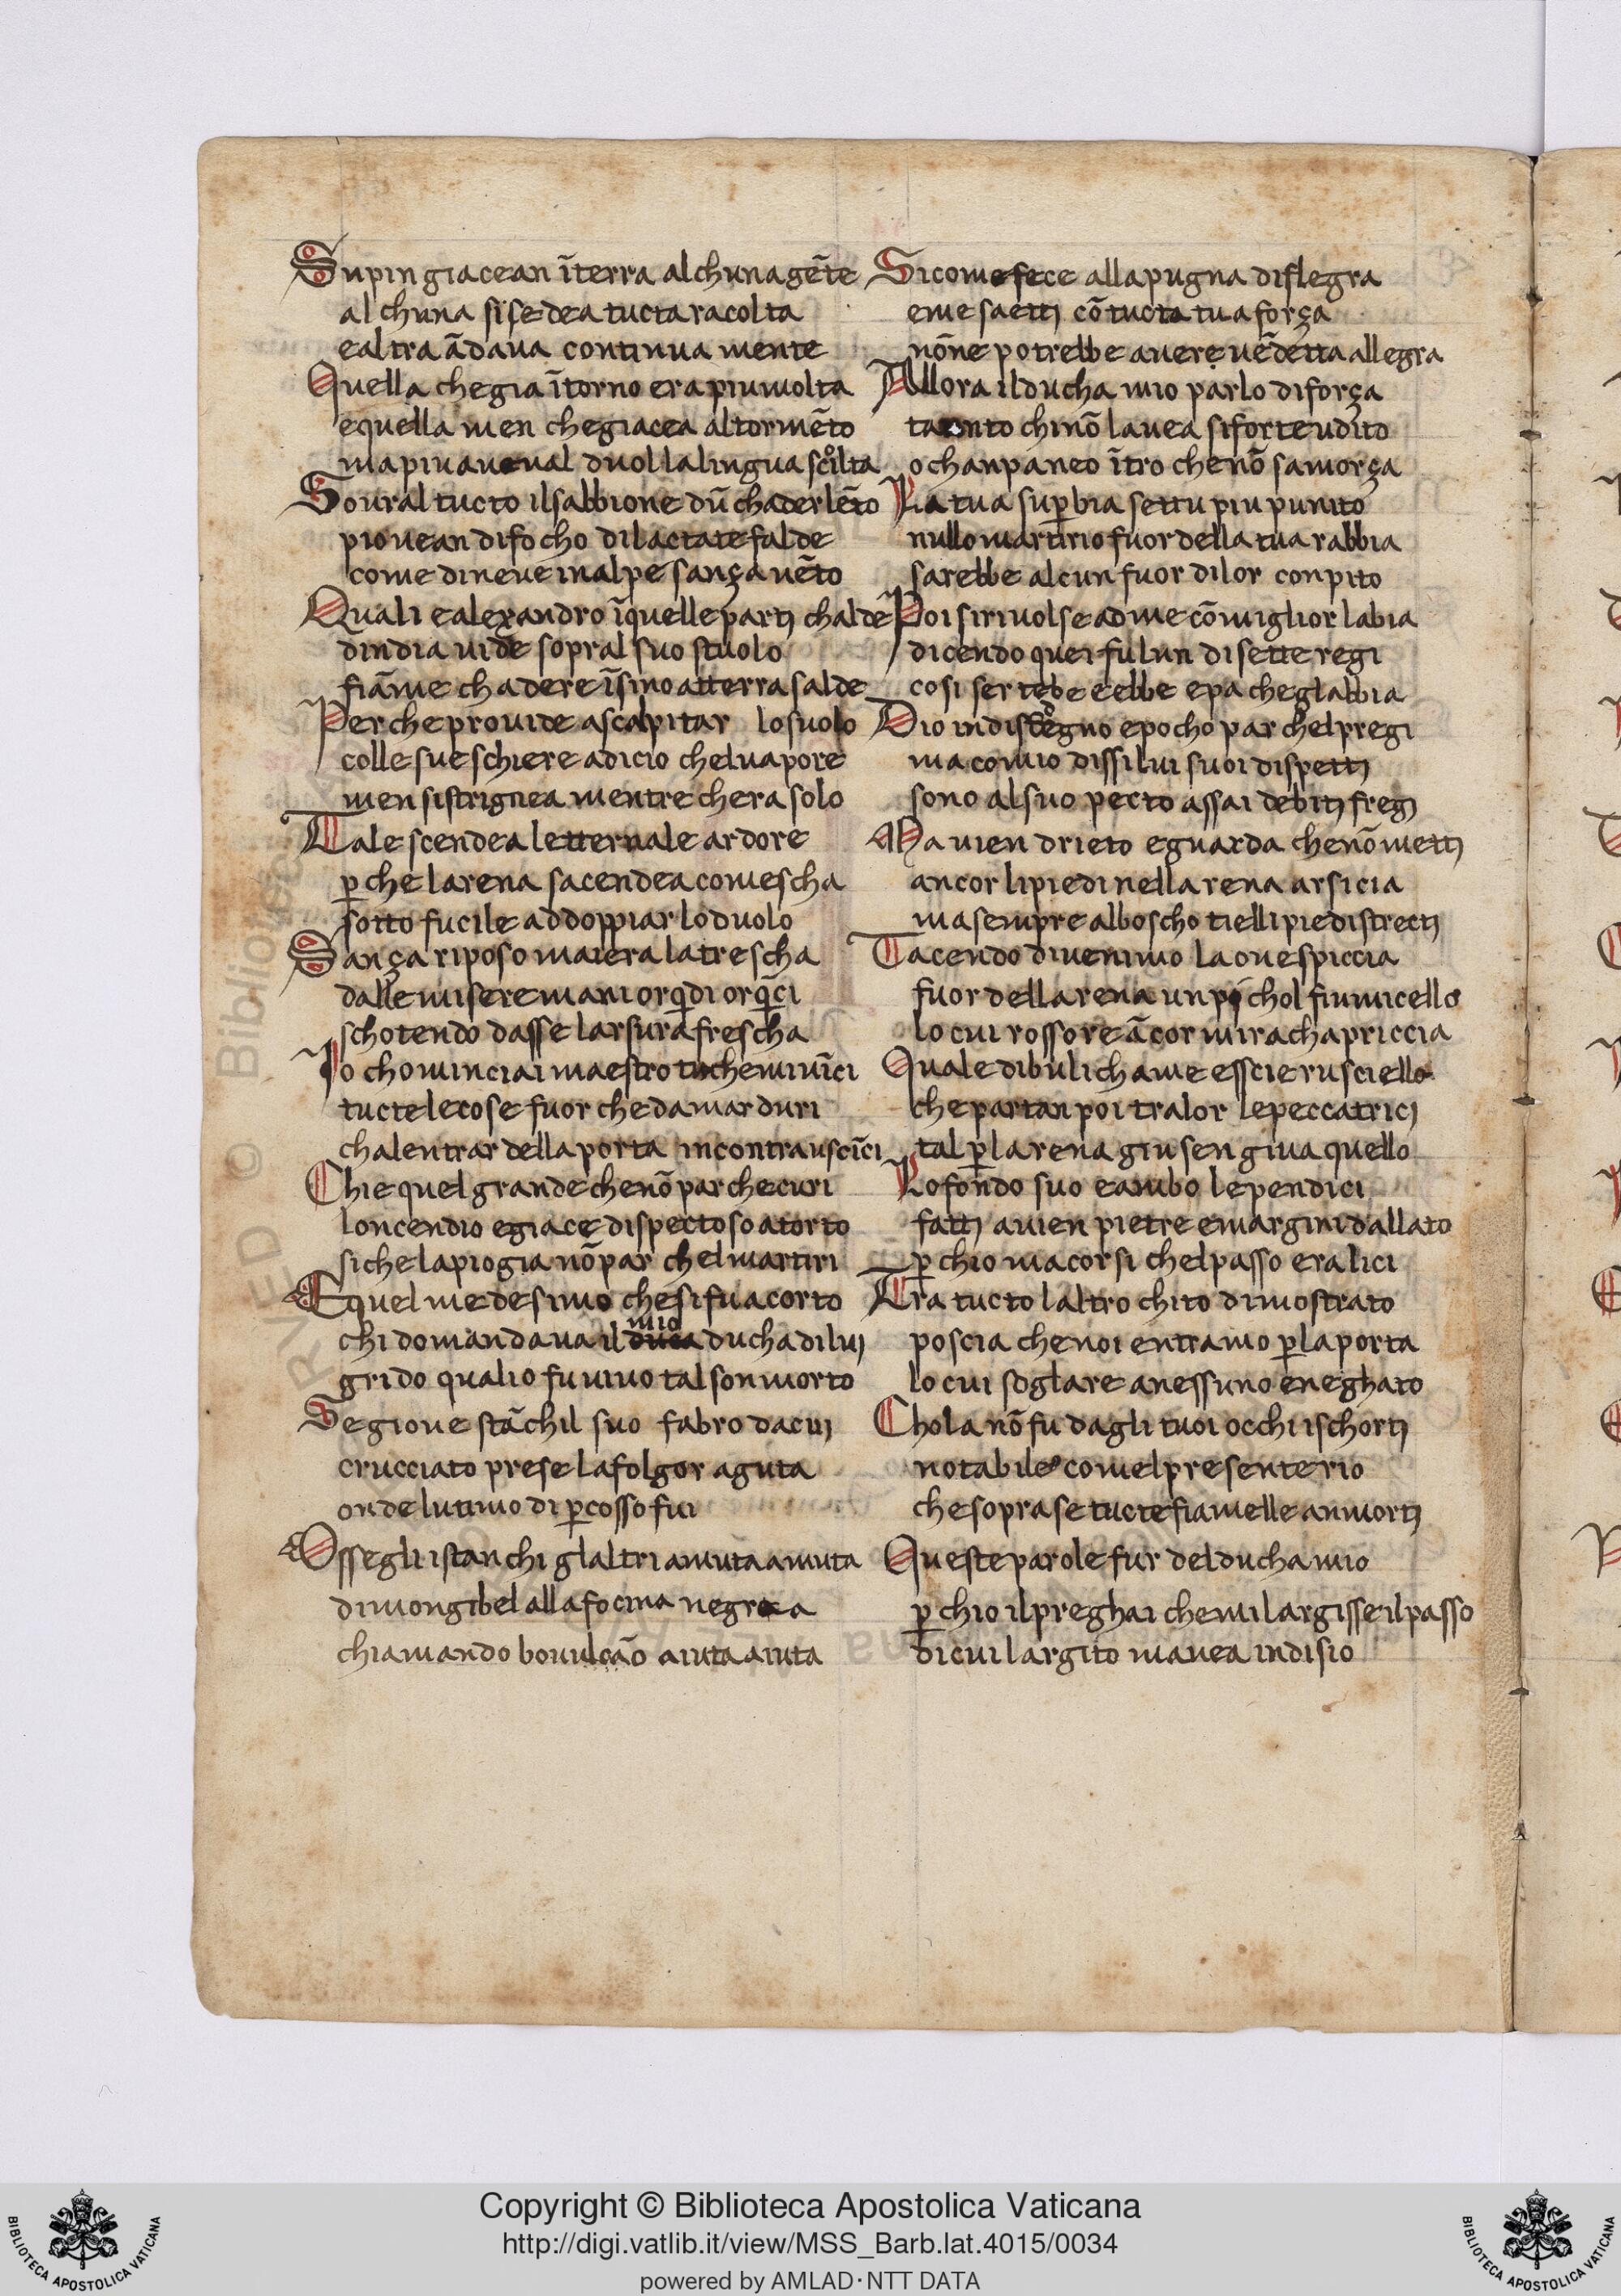 Supin giacean īterra alchuna gēte
alchuna si sedea tucta racolta
ealtra ādava continua mente
Quella chegia ītorno era piu molta
equella men chegiacea altormēto
mapiu aveval duol lalingua sciolta
Sovral tucto ilsabbione dū chaderlēto
piovean difocho dilactate falde
come dineve inalpe sança vēto
Quali ealexandro īquelle parti chalde
dindia vide sopral suo stuolo
fiāme chadere īsino atterra salde
Perche provide ascalpitar lo suolo
colle sue schiere adicio chelvapore
men sistrignea mentre chera solo
Tale scendea letternale ardore
ꝑche larena sacendea comescha
sotto fucile addoppiar lo duolo
Sança riposo mai era latrescha
dalle misere mani or qīdi or qīci
schotendo dasse larsura frescha
Io chominciai maestro tu chemivīci
tucte lecose fuor che damar duri
chalentrar della porta incontra uscīci
Chie quel grande chenō par checuri
loncendio egiace dispectoso atorto
siche lapiogia nō par chelmartiri
Equel medesimo chesifu acorto
chi domandava il duca mio ducha dilui
grido qualio fu vivo tal son morto
Se giove stāchil suo fabro dacui
crucciato prese lafolgor aguta
onde lutimo di ꝑcosso fui
Osse gli istanchi glaltri amuta amuta
dimongibel alla focina negra
chiamando bonvulcāo aiuta aiuta
Sicome fece alla pugna diflegra
eme saetti cō tucta tua força
nōne potrebbe avere vēdetta allegra
Allora ilducha mio parlo diforça
tanto chinō lavea siforte udito
o chanpaneo ītro chenō samorça
La tua suꝑbia settu piu punito
nullo martirio fuor della tua rabbia
sarebbe alcun fuor dilor conpito
Poi sirivolse adme cō miglior labia
dicendo quei fu lun disette regi
cosi ser tebe eebbe epa cheglabbia
Dio indisdegno epocho par chelpregi
ma comio dissilui suoi dispetti
sono alsuo pecto assai debiti fregi
Ma vien drieto eguarda chenō metti
ancor lipiedi nella rena arsicia
ma sempre alboscho tielli piedi strecti
Tacendo divenimo laove spiccia
fuor della rena un pichol fiumicello
lo cui rossore ācor mirachapriccia
Quale dibulichame esscie rusciello
che partan poi tralor lepeccatrici
tal ꝑlarena giu sen giva quello
Lofondo suo eambo lependici
fatti avien pietre emargini dallato
ꝑchio macorsi chelpasso era lici
Tra tucto laltro chito dimostrato
poscia chenoi entramo ꝑlaporta
lo cui soglare anessuno eneghato
Chola nō fu dagli tuoi occhi ischorti
notabile comelpresente rio
chesopra se tucte fiamelle anmorti
Queste parole fur delducha mio
ꝑchio ilpreghai chemilargisse ilpasso
dicui largito mavea indisio
Copyright © Biblioteca Apostolica Vaticana
http://digi.vatlib.it/view/MSS_Barb.lat.4015/0034
powered by AMLAD·NTT DATA
BIBLIOTECA APOSTOLICA VATICANA
BIBLIOTECA APOSTOLICA VATICANA